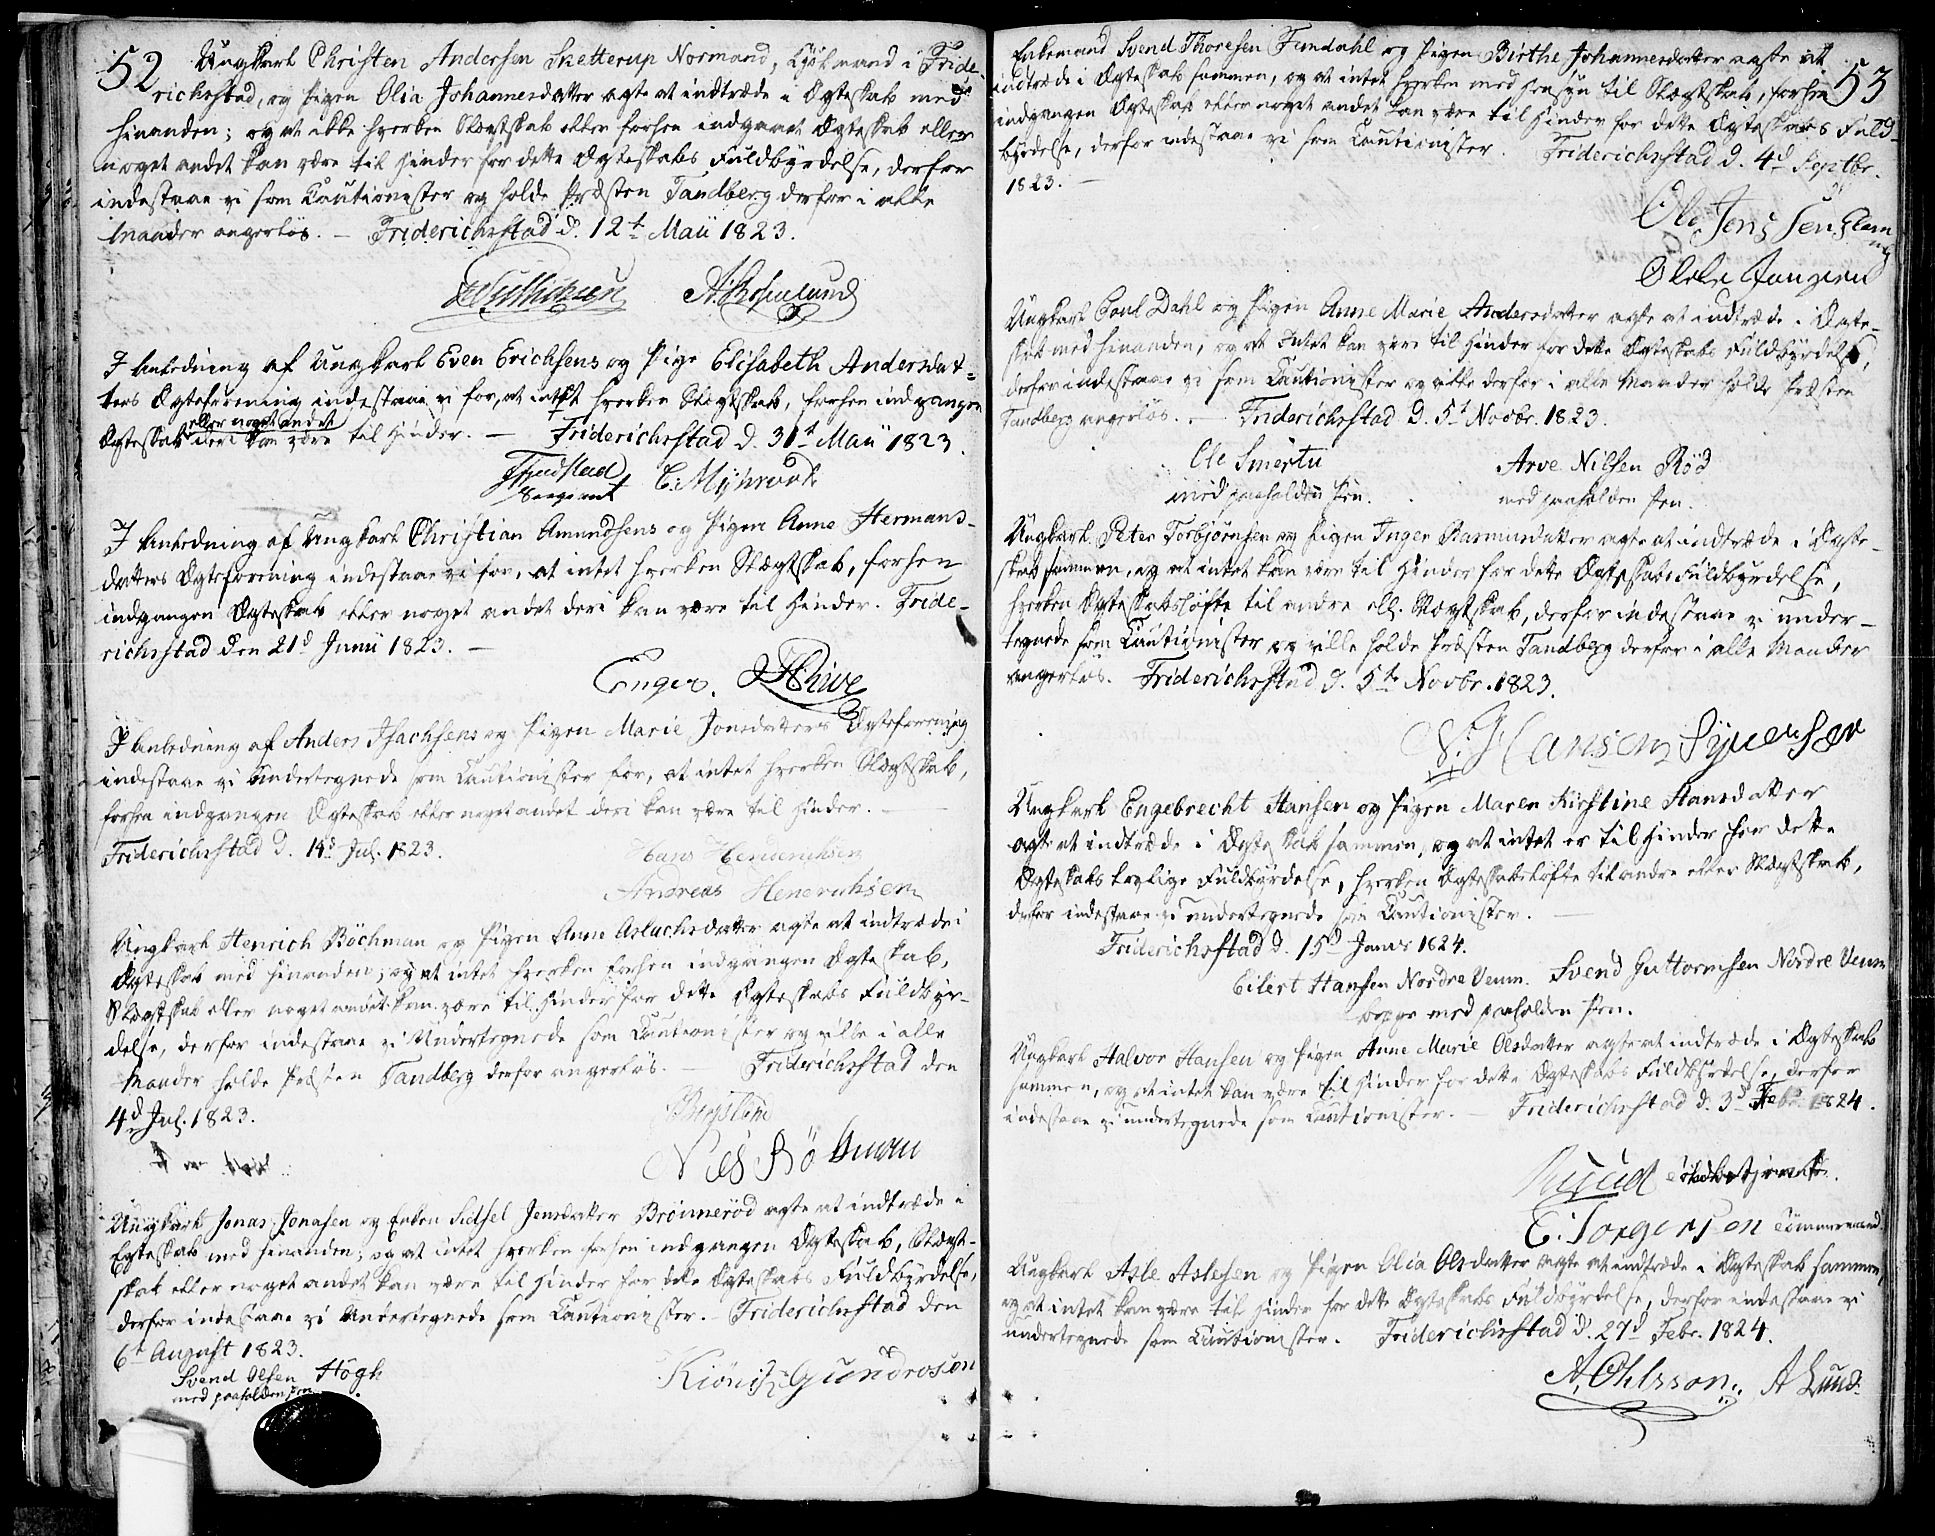 52
Ungkarl Christen Andersen Sketterup Normand, Lyst mand i Fride-
richsstad, og Pigen Olia Johannesdatter agte at indtræde i Ægteskab med
hinanden; og at ikke hverken Slægtskab eller forhen indgaaet Ægteskab eller
noget andet kan være til Hinder for dette Ægteskabs Fuldbyrdelse, derfor
indestaae vi som Cautionister og holde Præsten Tandberg derfor i alle
Maader angerløs. — Friderichsstad d. 12t Maii 1823.
A. Rosenlund
I Anledning af Ungkarl Even Erichsens og Pige Elisabeth Andersdat-
ters Ægteforening indestaae vi for, at intet hverken Slægtskab, forhen indgangen
Ægteskab eller noget andet deri kan være til Hinder. — Friderichsstad d. 31t Maii 1823.
Sergeant C. Mÿhrvold
I Anledning af Ungkarl Christian Amundsens og Pigen Anne Hermans-
datters Ægteforening indestaae vi for, at intet hverken Slægtskab, forhen
indgangen Ægteskab eller noget andet deri kan være til Hinder. Fride-
richsstad den 21d Junii 1823. —
Enger.
I Anledning af Anders Isachsens og Pigen Marie Jonsdatters Ægteforening
indestaae vi Undertegnede som Cautionister for, at intet hverken Slægtskab,
forhen indgangen Ægteskab eller noget andet deri kan være til Hinder. —
Friderichsstad d. Jul. 1823.
Hans Henderichsen
Andreas Henerichsen
Ungkarl Henrich Böchman og Pigen Anne Aslachsdatter agte at indtræde i
Ægteskab med hinanden; og at intet hverken forhen indgangen Ægteskab,
Slægtskab eller noget andet kan være til Hinder for dette Ægteskabs Fuldbyr-
delse, derfor indestaae vi Undertegnede som Cautionister og ville i alle
Maader holde Præsten Tandberg derfor angerløs. — Friderichsstad den
4d Jul. 1823.
Niels Böhman
Ungkarl Jonas Jonasen og Enken Sidsel Jensdatter Brönneröd agte at indtræde i
Egteskab med hinanden; og at intet hverken forhen indgangen Ægteskab, Slægt-
skab eller noget andet kan være til Hinder for dette Ægteskabs Fuldbyrdelse,
derfor indestaae vi Undertegnede som Cautionister. — Friderichsstad den
6t August 1823.
Svend Olsen Högh
med paaholden Pen
Gundrosen
53
Enkemand Svend Thoresen Femdahl og Pigen Birthe Johannesdatter agte at
indtræde i Ægteskab sammen, og at intet hverken med Hensyn til Slægtskab, forhen
indgangen Ægteskab eller noget andet kan være til Hinder for dette Ægteskabs Fuld-
byrdelse, derfor indestaae vi som Cautionister. Friderichsstad d. 4d Septbr.
1823. —
Ole Jensen
Ungkarl Poul Dahl og Pigen Anne Marie Andersdatter agte at indtræde i Ægte-
skab med hinanden, og at Intet kan være til Hinder for dette Ægteskabs Fuldbyrdelse,
derfor indestaae vi som Cautionister og ville derfor i alle Maader holde Præsten
Tandberg angerløs. — Friderichsstad d. 5t Novbr. 1823.
Ole Smertu Arve Nilsen Röd
med paaholden Pen. med paaholden Pen.
Ungkarl Peter Torbjörnsen og Pigen Inger Rasmusdatter agte at indtræde i Ægte-
skab sammen, og at intet kan være til Hinder for dette Ægteskabs Fuldbyrdelse,
hverken Ægteskabsløfte til andre ell. Slægtskab, derfor indestaae vi under-
tegnede som Cautionister og ville holde Præsten Tandberg derfor i alle Maader
angerløs. Friderichsstad d. 5te Novbr. 1823.
N. Hansen Syversen
Ungkarl Engebrecht Hansen og Pigen Maren Kirstine Hansdatter
agte at indtræde i Ægteskab sammen, og at intet er til Hinder for dette
Ægteskabs lovlige Fuldbyrdelse, hverken Ægteskabsløfte til andre eller Slægtskab,
derfor indestaae vi undertegnede som Cautionister. —
Friderichsstad d. 15d Januar 1824.
Eilert Hansen Nordre Veum. Svend Guttormsen Nordre Veum
begge med paaholden Pen.
Ungkarl Halvor Hansen og Pigen Anne Marie Olsdatter agte at indtræde i Ægteskab
sammen, og at intet kan være til Hinder for dette Ægteskabs Fuldbyrdelse, derfor
indestaae vi undertegnede som Cautionister. — Friderichsstad d. 3d Febr. 1824.
Knud
E. Torgersen Tömmermand
Ungkarl Asle Aslesen og Pigen Olia Olsdatter agte at indtræde i Ægteskab sammen,
og at intet kan være til Hinder for dette Ægteskabs Fuldbyrdelse, derfor indestaae vi
undertegnede som Cautionister. Friderichsstad d. 27d Febr. 1824.
A. Ohlsson. A Lund.